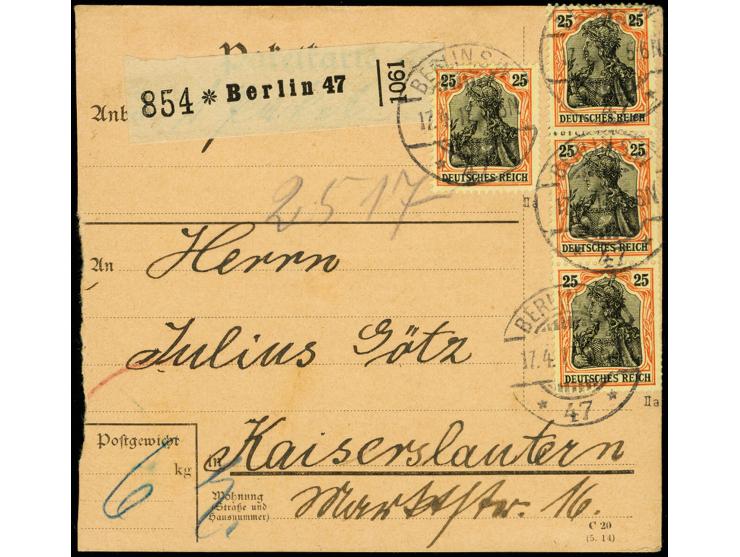 854 * Berlin 47
1061
Anb
2517
25 25
DEUTSCHES REICH
25 25
DEUTSCHES REICH
25 25
DEUTSCHES REICH
25 25
DEUTSCHES REICH
BERLIN S.W.
17.4
* 47 *
IIa
IIa
An Herrn
Julius Götz
Postgewicht
6 kg
in Kaiserslautern
Wohnung
(Straße und
Hausnummer)
Marktstr. 16.
C 20
(5. 14)